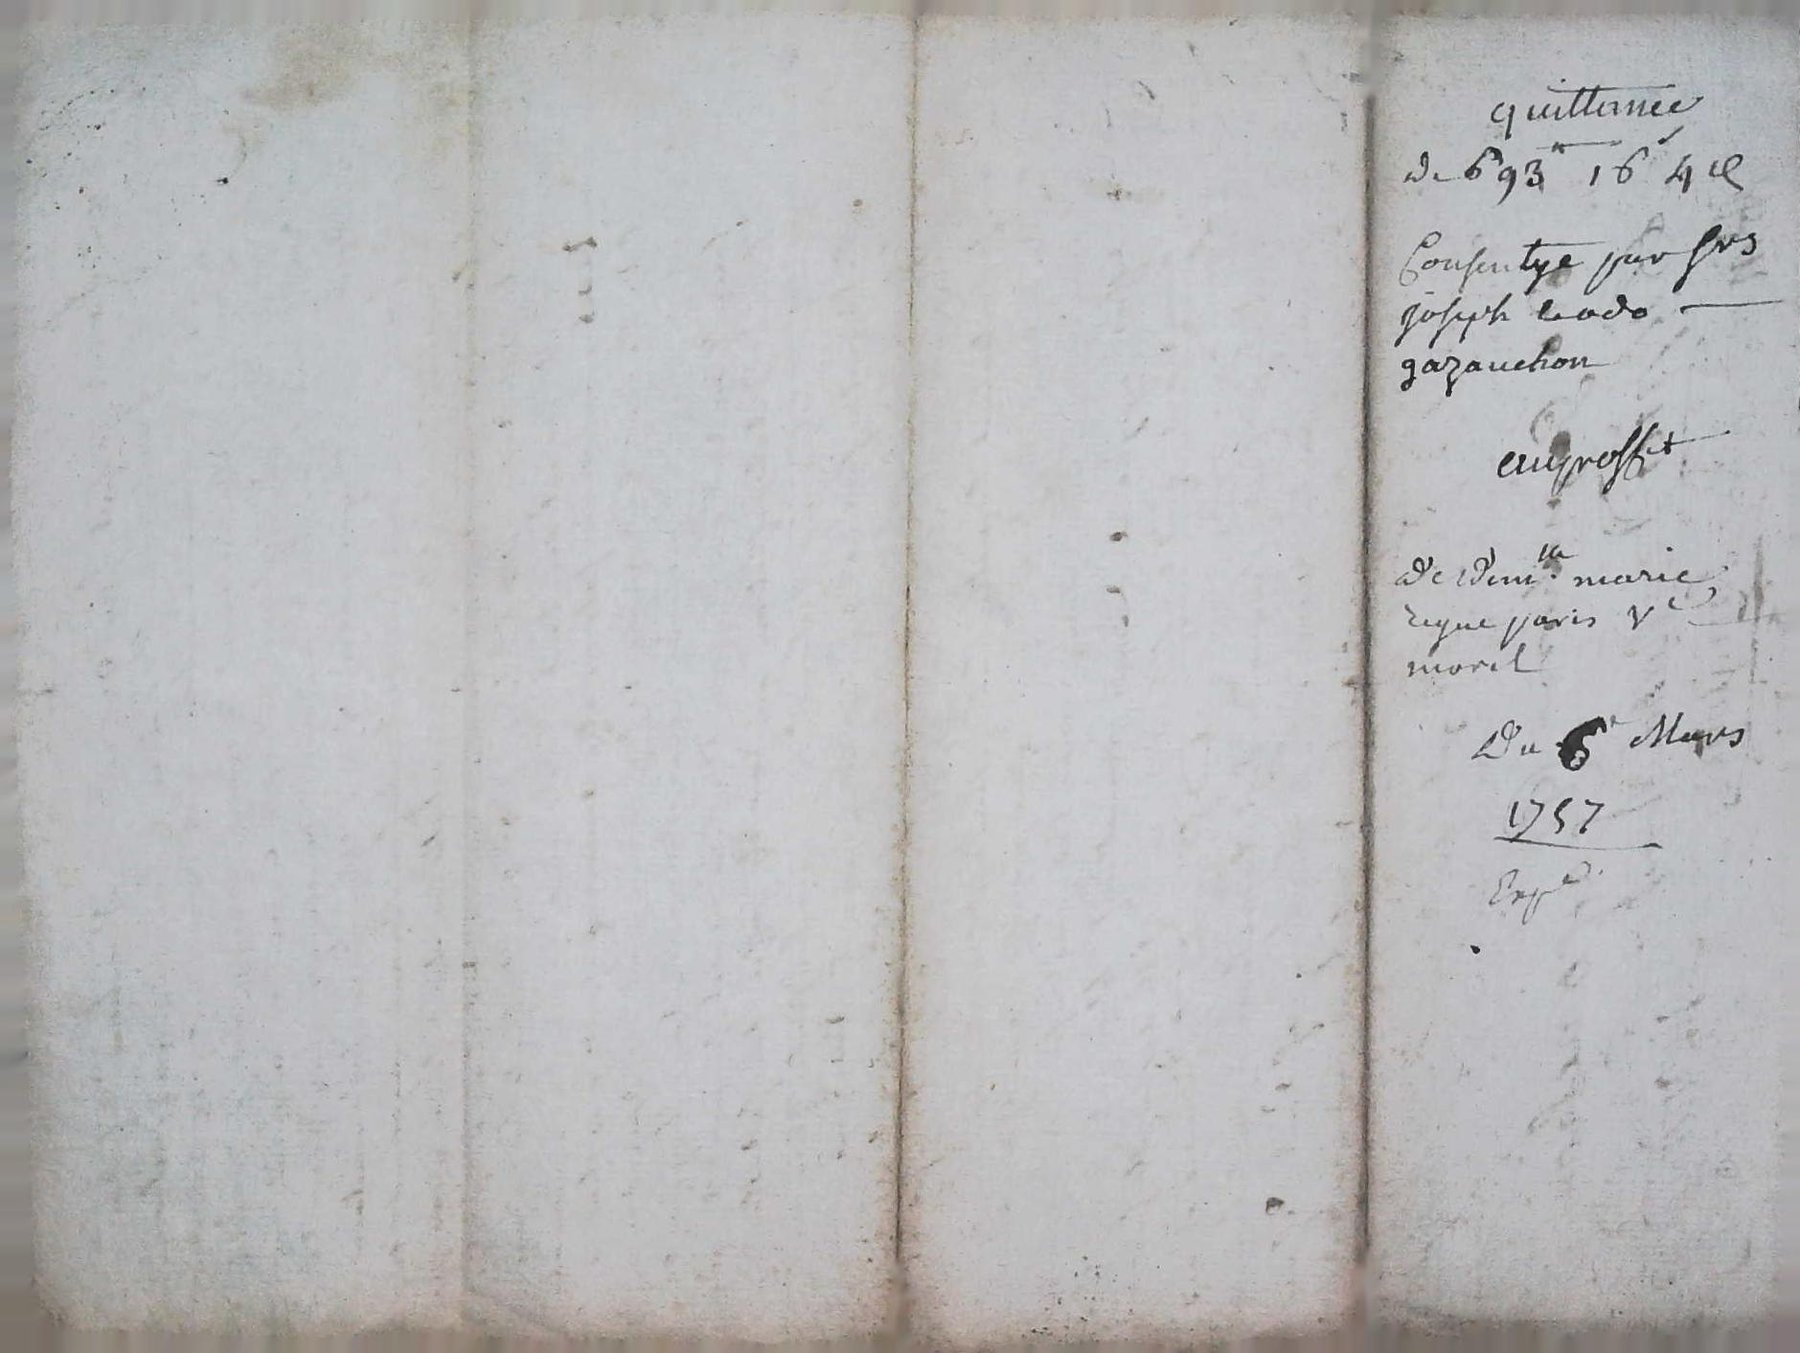 quittance
de 693# 16 s 4 d
Consentye par frs
joseph leado —
gazauchon
auproffit
de dem.lle marie
reyne paris Ve
morel
Du 6e Mars
1757
Exp.